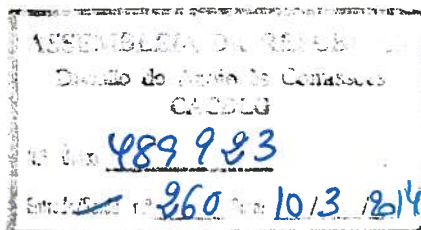 ASSEMBLEIA DA REPÚBLICA
Divisão de Apoio às Comissões
CACDLG
Nº Único 489923
Entrada/Saída nº 260 Data 10/3/2014